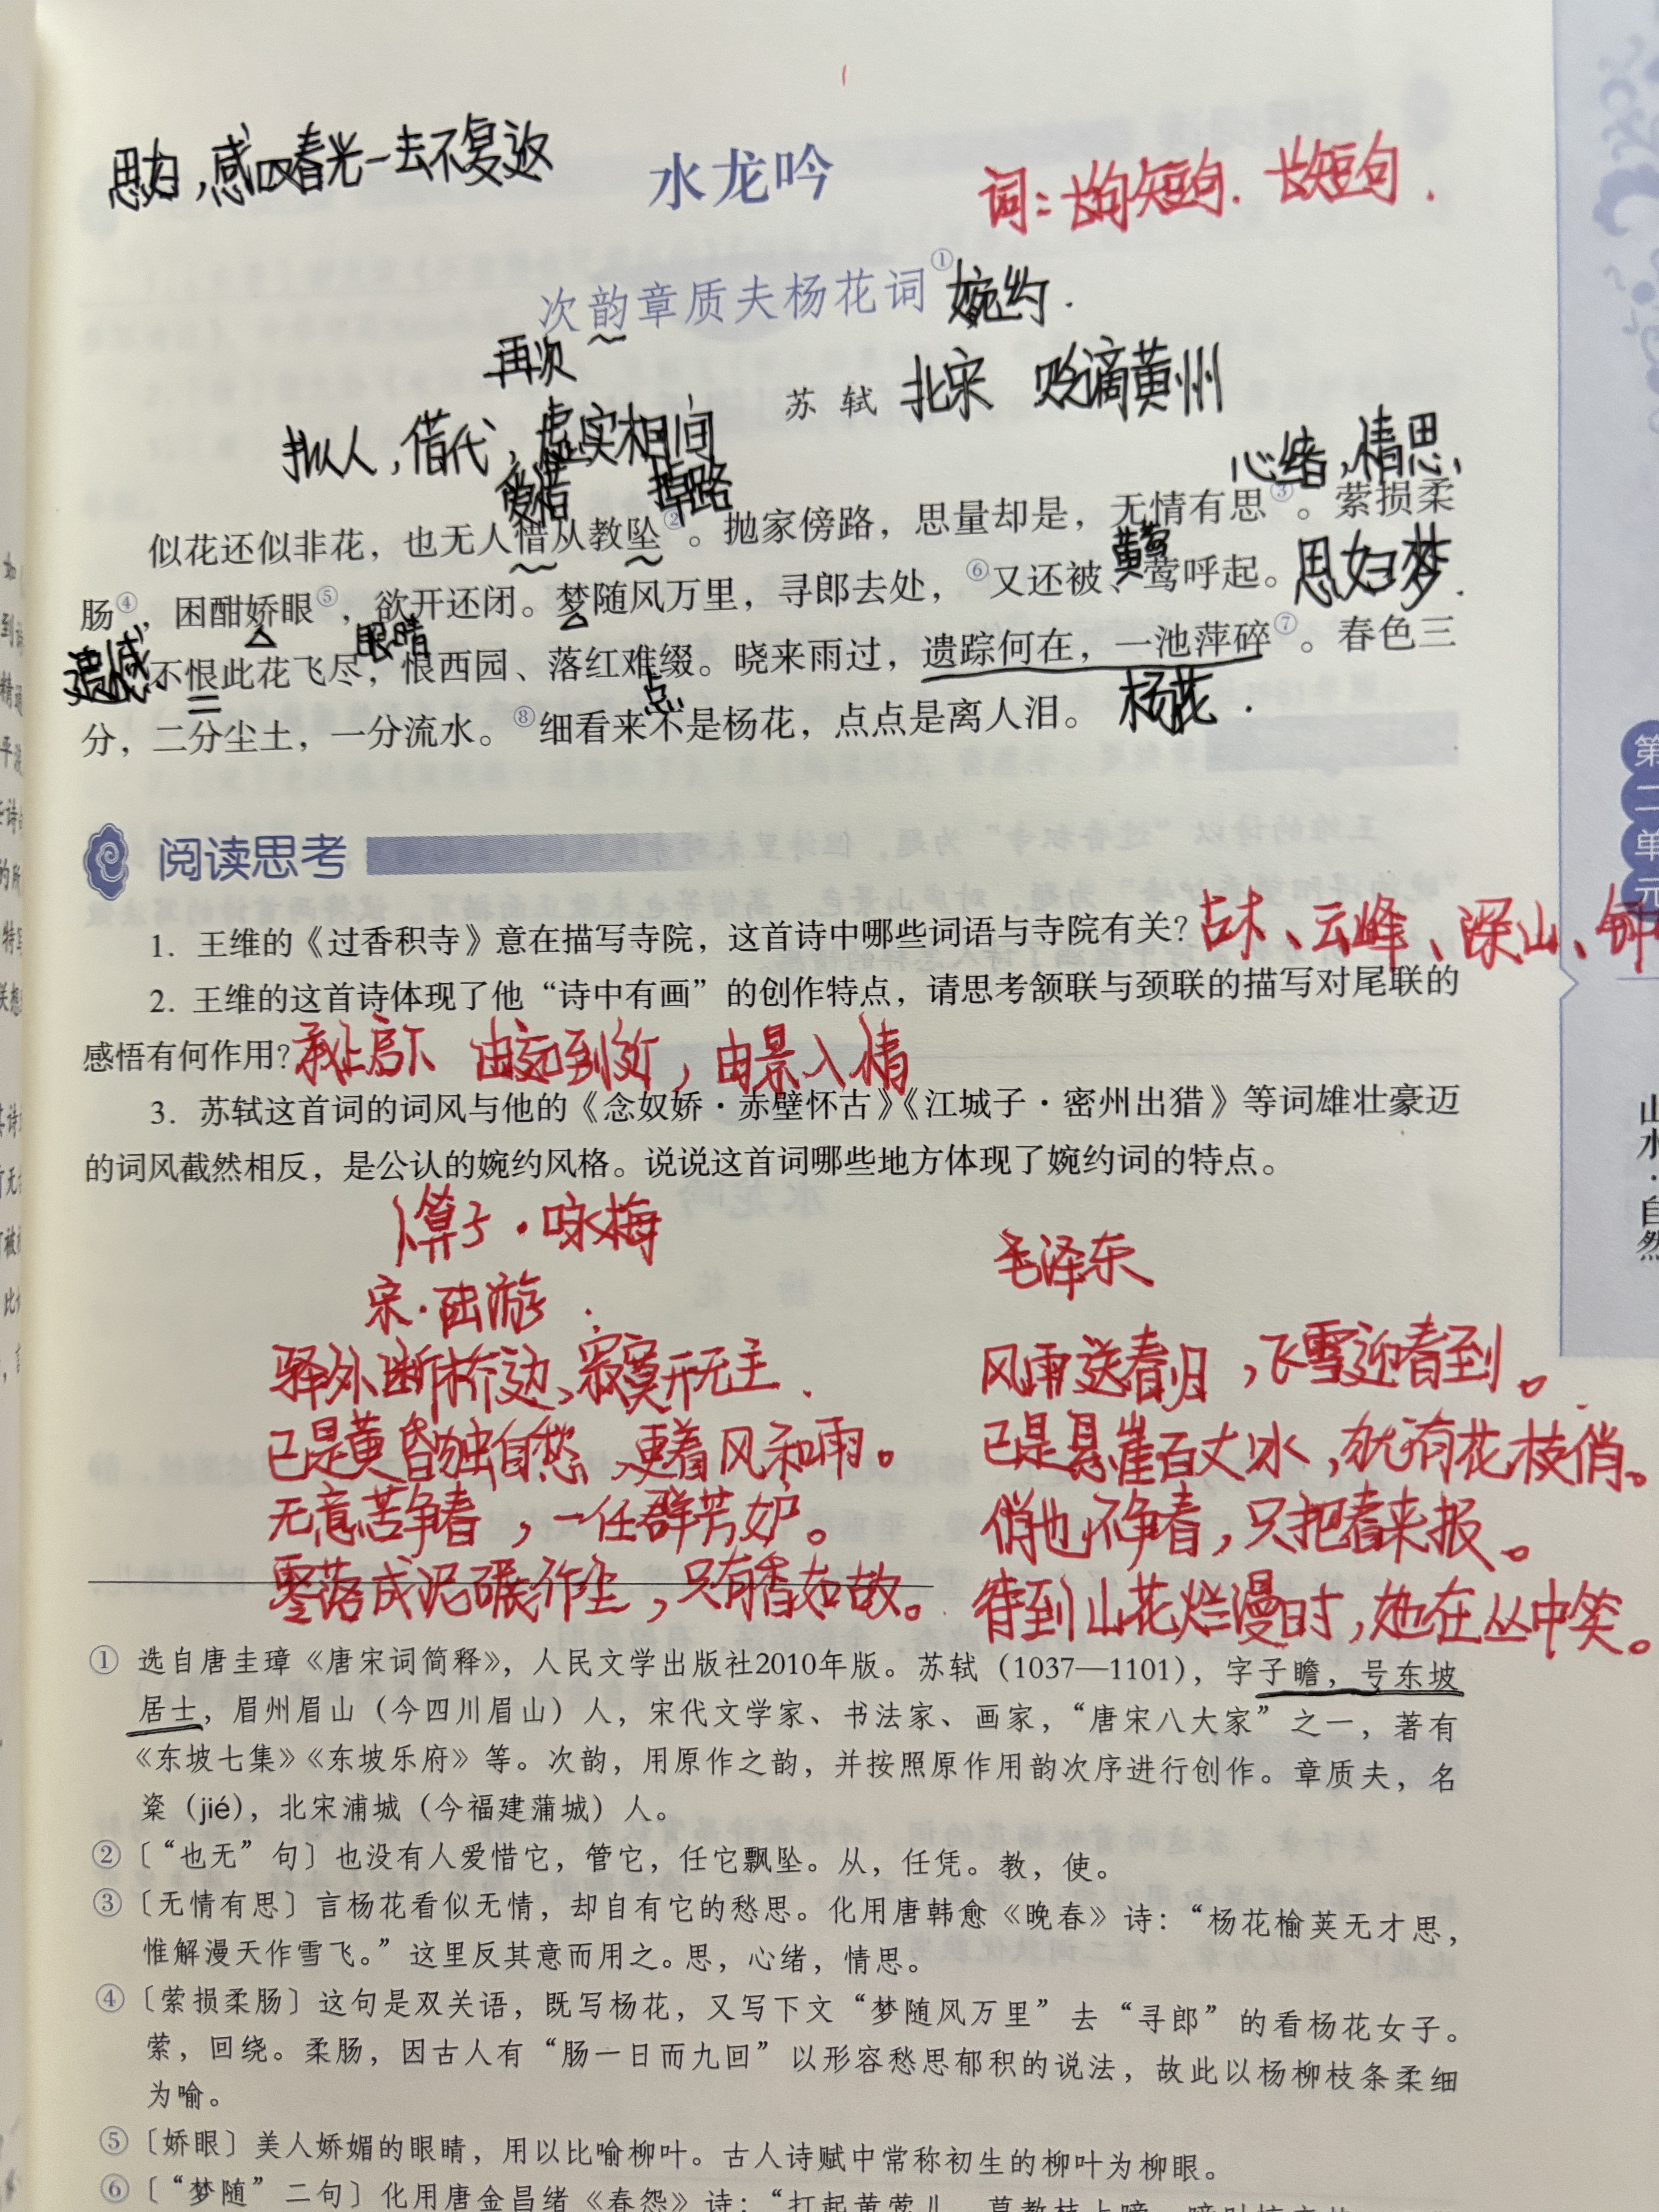 思妇，感叹春光一去不复返
水龙吟
词：长句短句．长短句．
次韵章质夫杨花词①
婉约．
再次
苏 轼
北宋 贬谪黄州
拟人，借代，虚实相间
心绪，情思、
爱惜
掉路
似花还似非花，也无人惜从教坠②。抛家傍路，思量却是，无情有思③。萦损柔
黄莺
思妇梦．
肠④，困酣娇眼⑤，欲开还闭。梦随风万里，寻郎去处，⑥又还被、莺呼起。
眼睛
遗憾
不恨此花飞尽，恨西园、落红难缀。晓来雨过，遗踪何在，一池萍碎⑦。春色三
点
杨花．
分，二分尘土，一分流水。⑧细看来不是杨花，点点是离人泪。
阅读思考
1. 王维的《过香积寺》意在描写寺院，这首诗中哪些词语与寺院有关？
古木、云峰、深山、钟
2. 王维的这首诗体现了他“诗中有画”的创作特点，请思考颔联与颈联的描写对尾联的
感悟有何作用？
承上启下 由远到近，由景入情
3. 苏轼这首词的词风与他的《念奴娇·赤壁怀古》《江城子·密州出猎》等词雄壮豪迈
的词风截然相反，是公认的婉约风格。说说这首词哪些地方体现了婉约词的特点。
卜算子·咏梅
宋·陆游
驿外断桥边、寂寞开无主．
已是黄昏独自愁、更着风和雨。
无意苦争春，一任群芳妒。
零落成泥碾作尘，只有香如故。
毛泽东
风雨送春归，飞雪迎春到。
已是悬崖百丈冰，犹有花枝俏。
俏也不争春，只把春来报。
待到山花烂漫时，她在丛中笑。
① 选自唐圭璋《唐宋词简释》，人民文学出版社2010年版。苏轼（1037—1101），字子瞻，号东坡
居士，眉州眉山（今四川眉山）人，宋代文学家、书法家、画家，“唐宋八大家”之一，著有
《东坡七集》《东坡乐府》等。次韵，用原作之韵，并按照原作用韵次序进行创作。章质夫，名
楶（jié），北宋浦城（今福建蒲城）人。
② 〔“也无”句〕也没有人爱惜它，管它，任它飘坠。从，任凭。教，使。
③ 〔无情有思〕言杨花看似无情，却自有它的愁思。化用唐韩愈《晚春》诗：“杨花榆荚无才思，
惟解漫天作雪飞。”这里反其意而用之。思，心绪，情思。
④ 〔萦损柔肠〕这句是双关语，既写杨花，又写下文“梦随风万里”去“寻郎”的看杨花女子。
萦，回绕。柔肠，因古人有“肠一日而九回”以形容愁思郁积的说法，故此以杨柳枝条柔细
为喻。
⑤ 〔娇眼〕美人娇媚的眼睛，用以比喻柳叶。古人诗赋中常称初生的柳叶为柳眼。
⑥ 〔“梦随”二句〕化用唐金昌绪《春怨》诗：“打起黄莺儿，莫教枝上啼。
第二单元
山水·自然